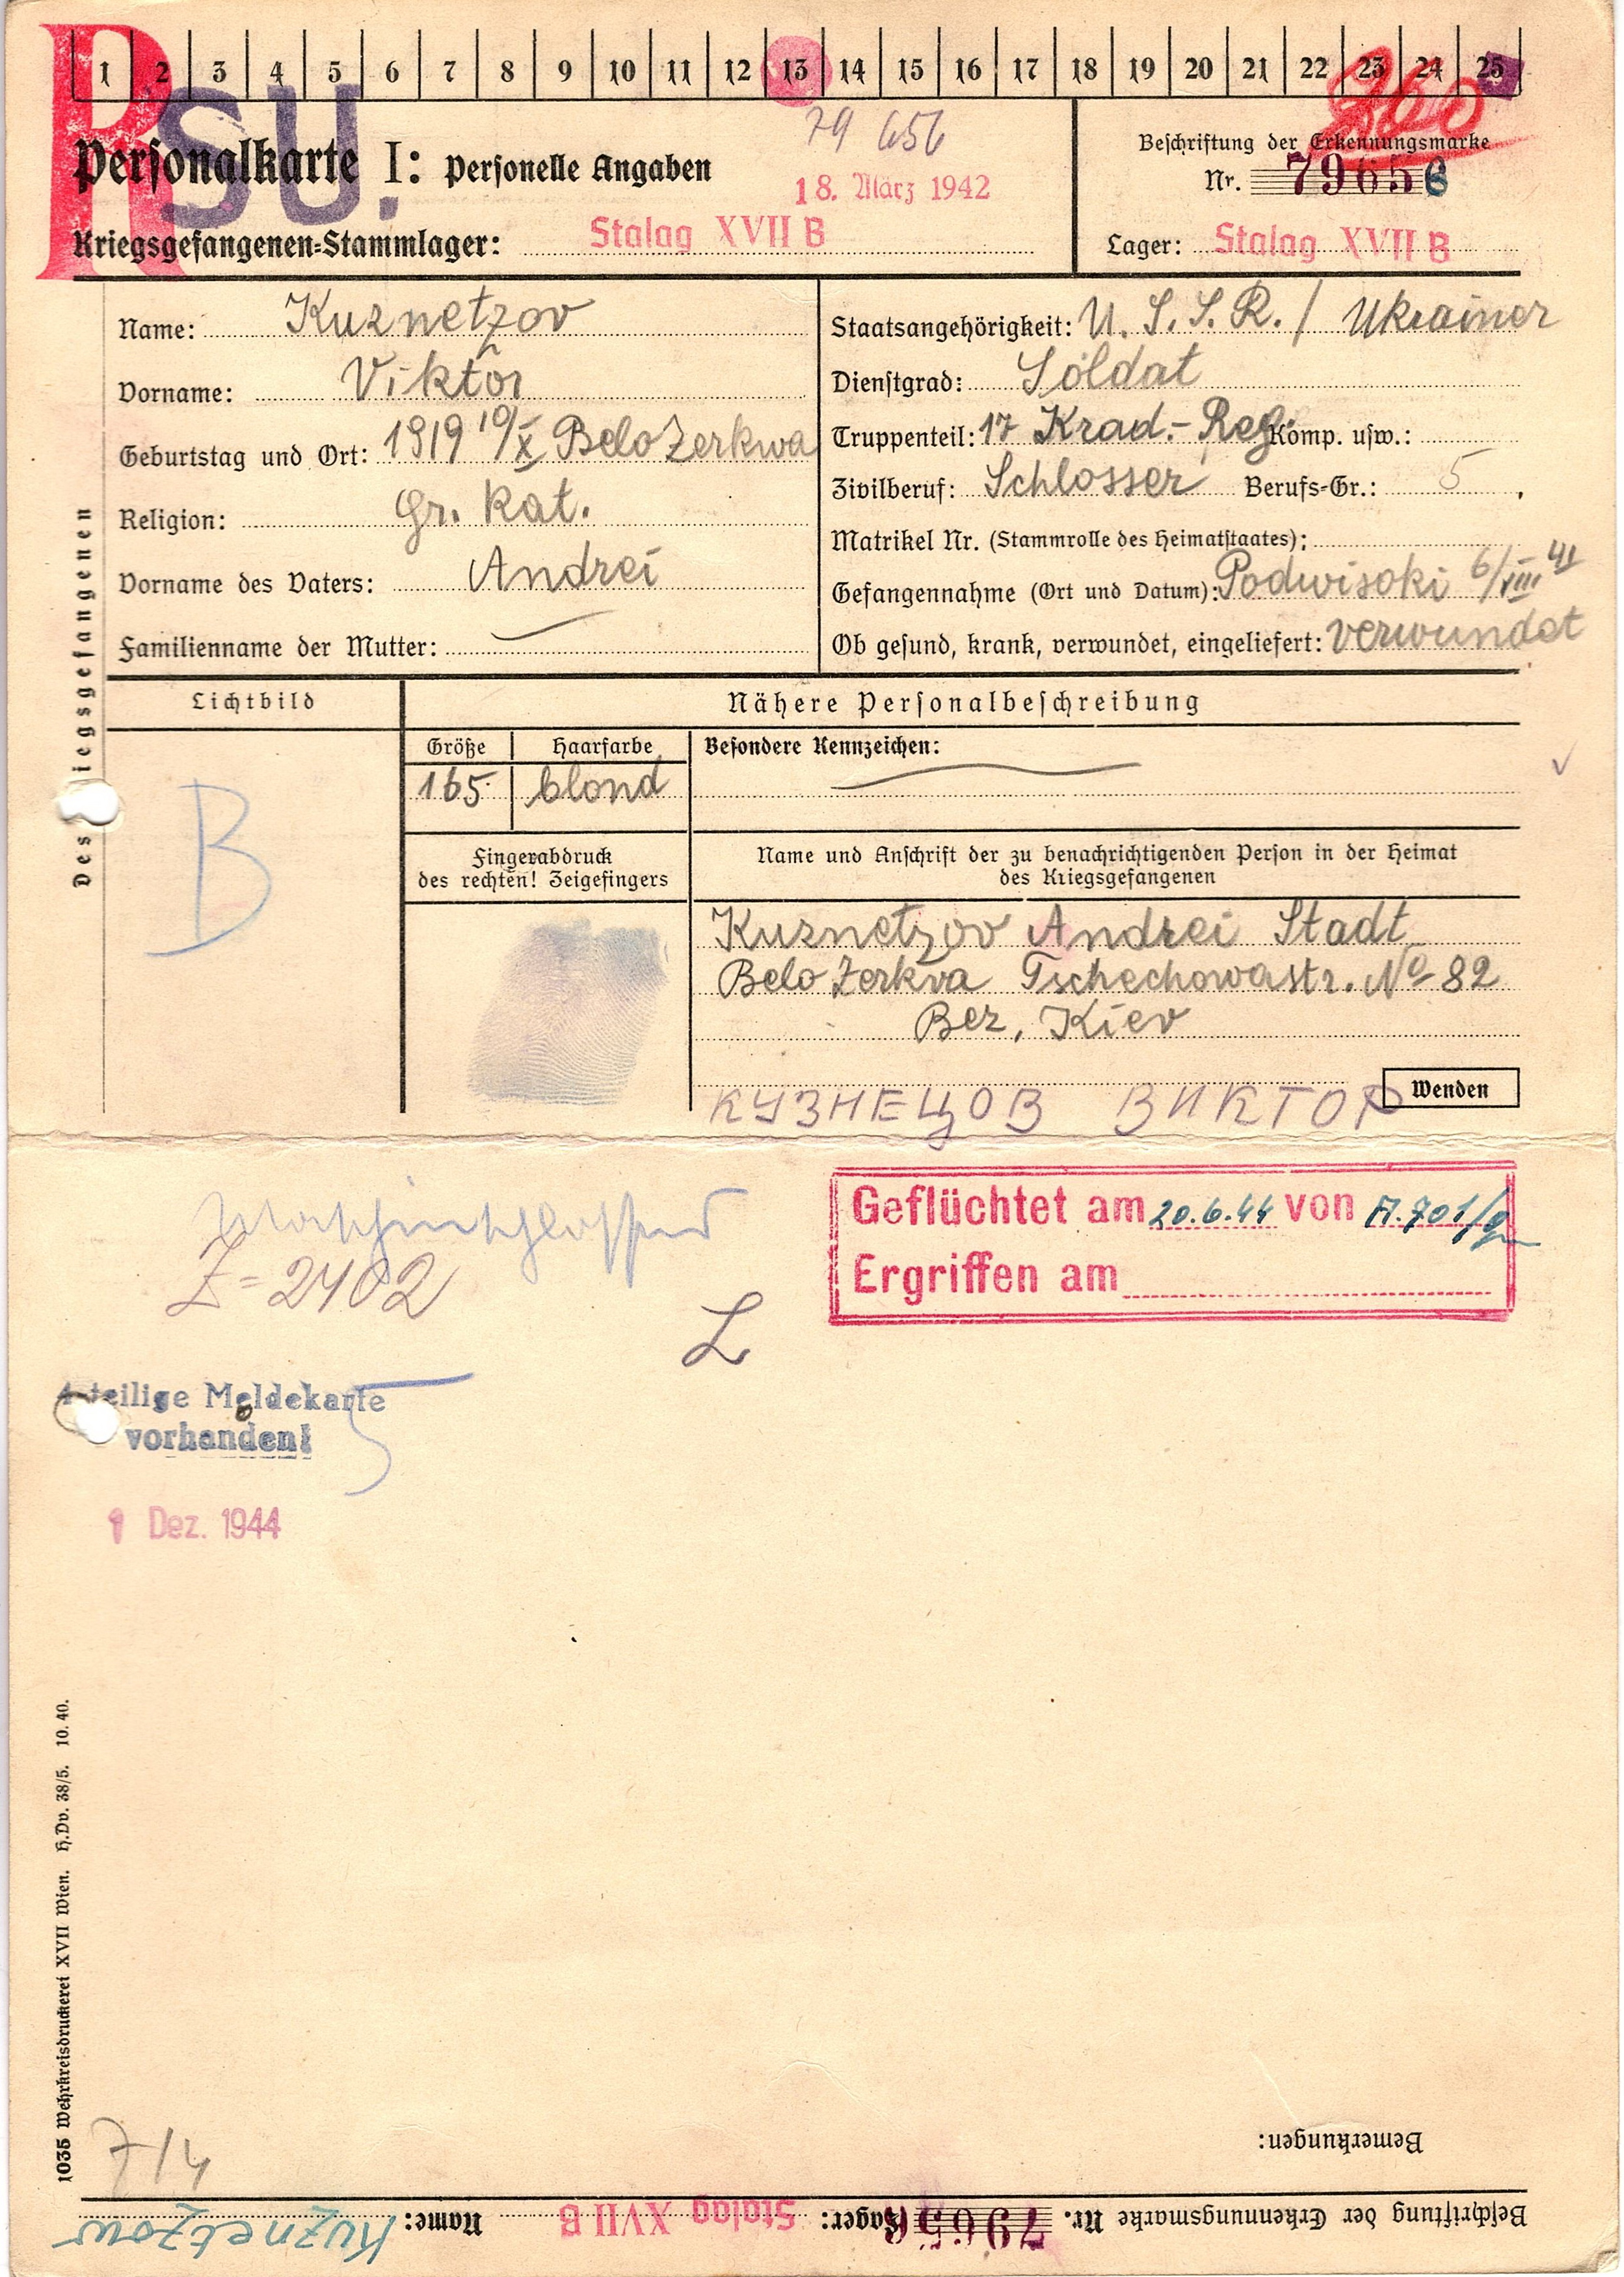 1 2 3 4 5 6 7 8 9 10 11 12 13 14 15 16 17 18 19 20 21 22 23 24 25
R
SU.
79 656
Personalkarte I: Personelle Angaben
18. März 1942
Kriegsgefangenen=Stammlager: Stalag XVII B
Beschriftung der Erkennungsmarke
Nr. 79656
Lager: Stalag XVII B
Des Kriegsgefangenen
Name: Kuznetzov
Vorname: Viktor
Geburtstag und Ort: 1919 19/X Belo Zerkwa
Religion: Gr. Kat.
Vorname des Vaters: Andrei
Familienname der Mutter:
Staatsangehörigkeit: U.S.S.R. / Ukrainer
Dienstgrad: Soldat
Truppenteil: 17 Krad.-Reg. Komp. usw.:
Zivilberuf: Schlosser Berufs-Gr.: 5
Matrikel Nr. (Stammrolle des Heimatstaates):
Gefangennahme (Ort und Datum): Podwisoki 6/VIII 41
Ob gesund, krank, verwundet, eingeliefert: verwundet
Lichtbild
B
Nähere Personalbeschreibung
Größe Haarfarbe Besondere Kennzeichen:
165 blond
Fingerabdruck
des rechten! Zeigefingers
Name und Anschrift der zu benachrichtigenden Person in der Heimat
des Kriegsgefangenen
Kuznetzov Andrei Stadt
Belo Zerkva Tschechowastr. No 82
Bez. Kiev
Wenden
КУЗНЕЦОВ ВИКТОР
Maschinschlosser
Z=2402
L
Geflüchtet am 20.6.44 von A.701/g
Ergriffen am
4-teilige Meldekarte
vorhanden!
5
1 Dez. 1944
1035 Wehrkreisdruckerei XVII Wien. H.Dv. 38/5. 10. 40.
7/4
Bemerkungen:
Beschriftung der Erkennungsmarke Nr. 79656 Lager: Stalag XVII B Name: Kuznetzow